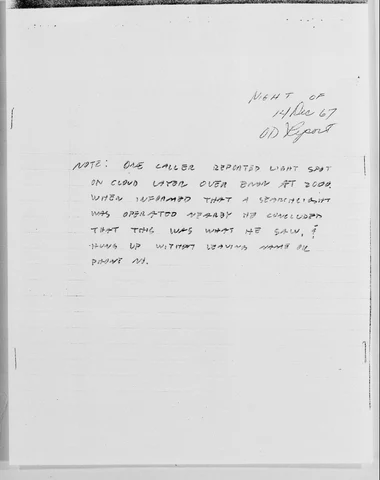 NIGHT OF
14 Dec 67
OD Report
NOTE: ONE CALLER REPORTED LIGHT SPOT
ON CLOUD LAYER OVER AT 2000.
WHEN INFORMED THAT A SEARCHLIGHT
WAS OPERATED NEARBY HE CONCLUDED
THAT THIS WAS WHAT HE SAW, &
HUNG UP WITHOUT LEAVING NAME OR
PHONE NO.